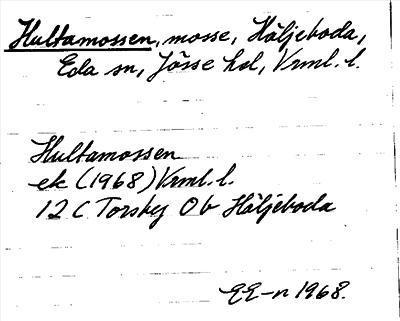 Hultamossen, mosse, Häljeboda,
Eda sn, Jösse hd, Vrml. l.
Hultamossen
ek (1968) Vrml. l.
12 C Torsby 0 b Häljeboda
1968.